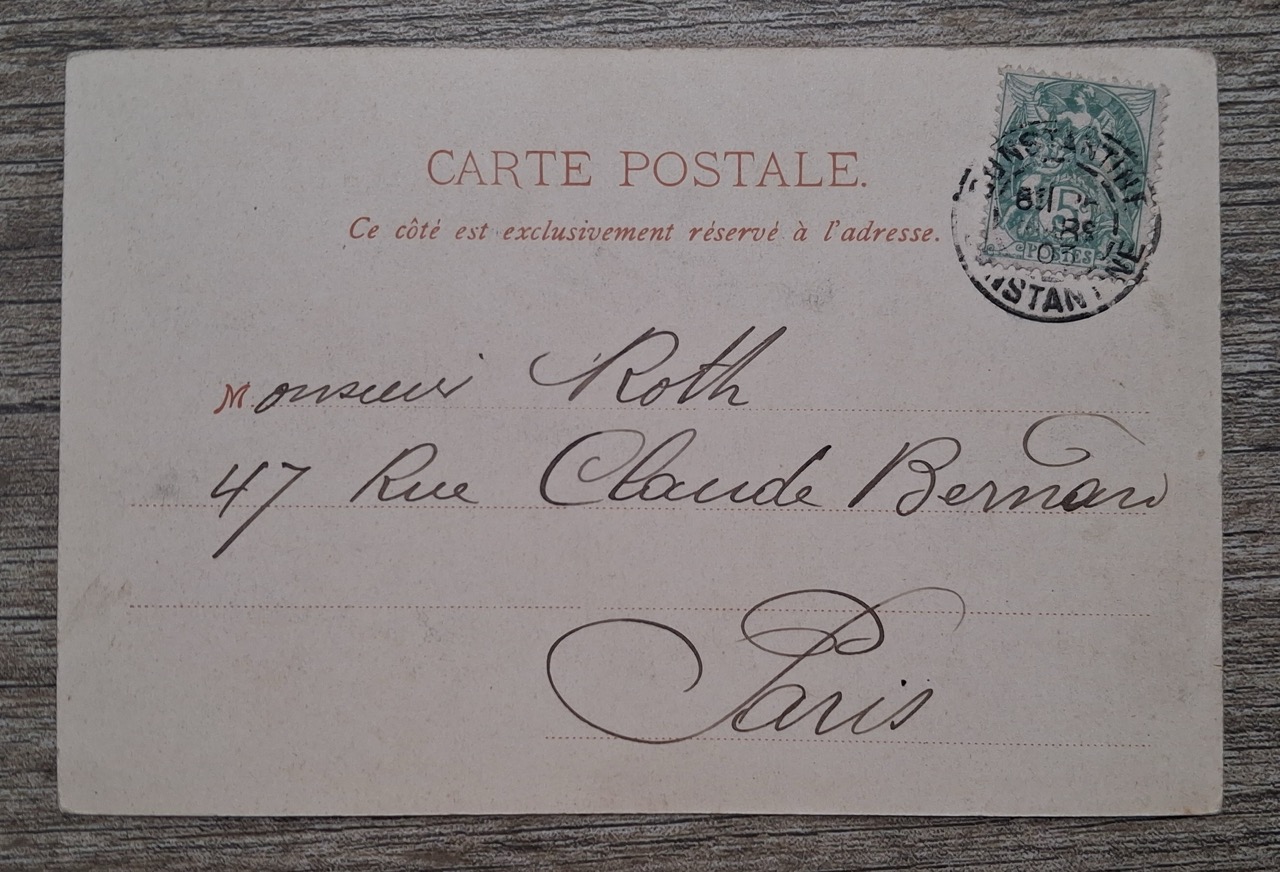 CARTE POSTALE.
Ce côté est exclusivement réservé à l'adresse.
CONSTANTINE
5
POSTES
CONSTANTINE
Monsieur Roth
47 Rue Claude Bernard
Paris